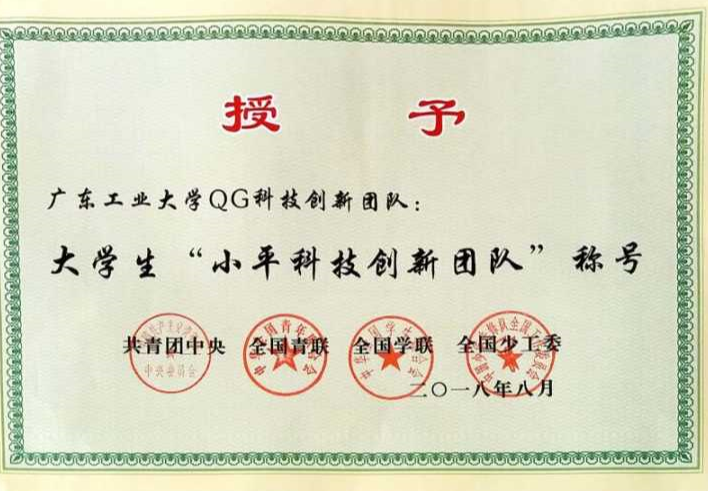 授予
广东工业大学QG科技创新团队：
大学生“小平科技创新团队”称号
共青团中央 全国青联 全国学联 全国少工委
二〇一八年八月